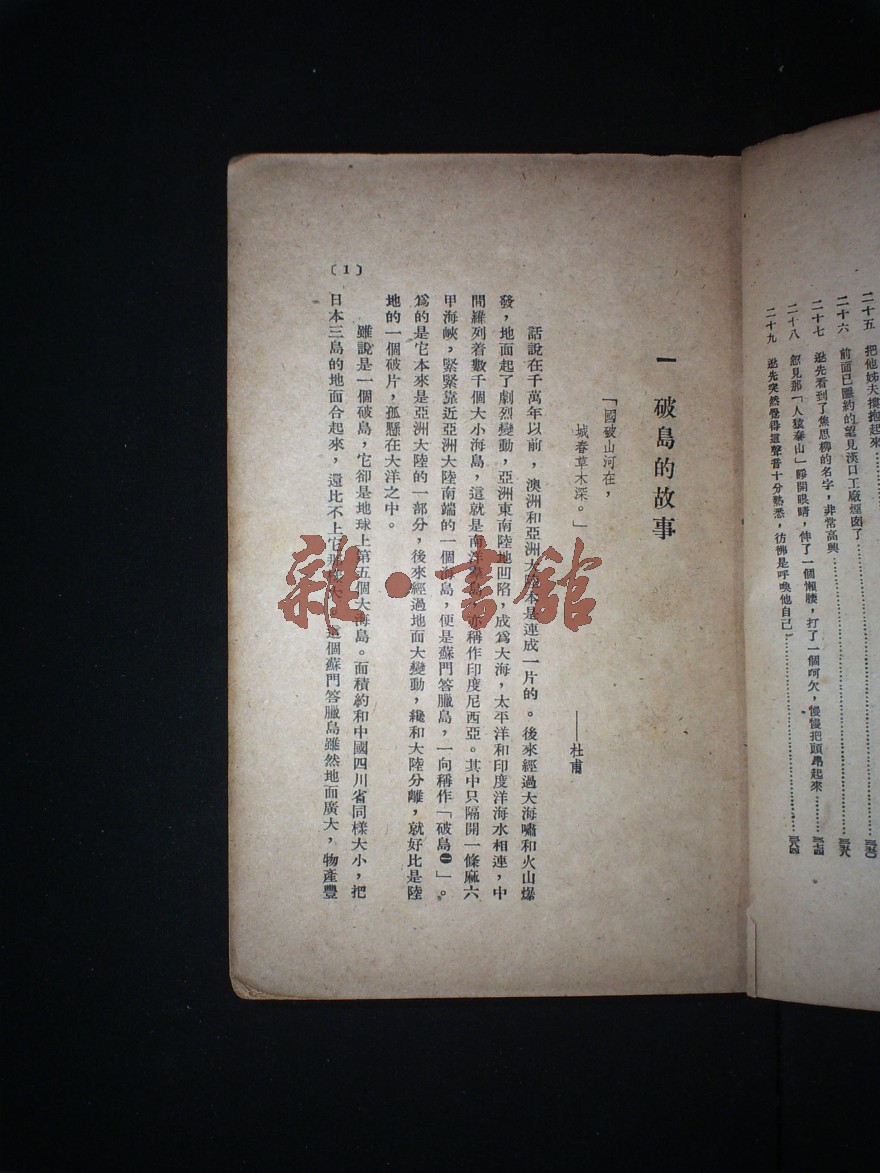 二十五　把他姊夫摟抱起來
二十六　前面已隱約的望見漢口工廠煙囱了
二十七　逖先看到了焦思柳的名字，非常高興
二十八　忽見那「人猿泰山」睜開眼睛，伸了一個懶腰，打了一個呵欠，慢慢把頭昂起來
二十九　逖先突然覺得這聲音十分熟悉，彷彿是呼喚他自己
一　破島的故事
「國破山河在，
城春草木深。」
——杜甫
話說在千萬年以前，澳洲和亞洲大陸本是連成一片的。後來經過大海嘯和火山爆
發，地面起了劇烈變動，亞洲東南陸地凹陷，成爲大海，太平洋和印度洋海水相連，中
間羅列着數千個大小海島，這就是南洋羣島，亦稱作印度尼西亞。其中只隔開一條麻六
甲海峽，緊緊靠近亞洲大陸南端的一個海島，便是蘇門答臘島，一向稱作「破島㊀」。
爲的是它本來是亞洲大陸的一部分，後來經過地面大變動，纔和大陸分離，就好比是陸
地的一個破片，孤懸在大洋之中。
雖說是一個破島，它卻是地球上第五個大海島。面積約和中國四川省同樣大小，把
日本三島的地面合起來，還比不上它那樣大。這個蘇門答臘島雖然地面廣大，物產豐
〔1〕
雜·書館